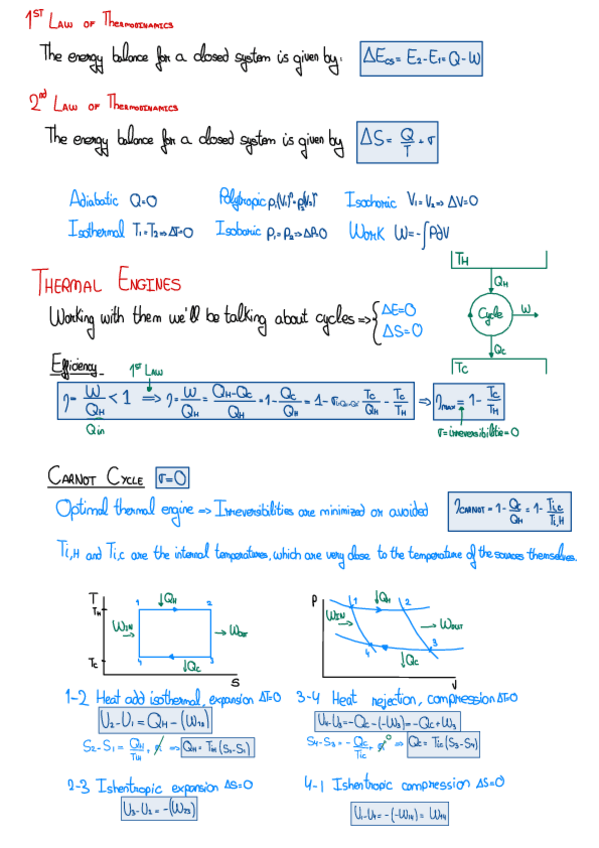 1ST LAW OF THERMODINAMICS
The energy balance for a closed system is given by: ΔE_CS = E₂-E₁ = Q-W
2nd LAW OF THERMODINAMICS
The energy balance for a closed system is given by ΔS = Q/T + σ
Adiabatic Q=0 Polytropic p₁(V₁)ⁿ=p₂(V₂)ⁿ Isochoric V₁=V₂ ⇒ ΔV=0
Isothermal T₁=T₂ ⇒ ΔT=0 Isobaric p₁=p₂ ⇒ Δp=0 Work W=-∫PdV
THERMAL ENGINES
Working with them we'll be talking about cycles ⇒ { ΔE=0
ΔS=0
T_H
Q_H
Cycle W
Q_C
T_C
Efficiency
1ST LAW
η = W/Q_H < 1 ⇒ η = W/Q_H = (Q_H-Q_C)/Q_H = 1-Q_C/Q_H = 1-σ T_C/Q_H - T_C/T_H ⇒ η_max = 1-T_C/T_H
Q in
σ=irreversibilitie=0
CARNOT CYCLE σ=0
Optimal thermal engine ⇒ Irreversibilities are minimized or avoided η_CARNOT = 1-Q_C/Q_H = 1-T_i,C/T_i,H
T_i,H and T_i,C are the internal temperatures, which are very close to the temperature of the sources themselves.
T T_H 1 ↓Q_H 2
W_IN → → W_OUT
T_C 4 ↓Q_C 3
S
P 1 ↓Q_H 2
W_IN → → W_OUT
4 ↓Q_C 3
V
1-2 Heat add isothermal, expansion ΔT=0
U₂-U₁=Q_H-(W₁₂)
S₂-S₁ = Q_H/T_H + σ ⇒ Q_H = T_iH(S₂-S₁)
2-3 Ishentropic expansion ΔS=0
U₃-U₂ = -(W₂₃)
3-4 Heat rejection, compression ΔT=0
U₄-U₃=-Q_C-(-W₃)=-Q_C+W₃
S₄-S₃ = -Q_C/T_iC + σ⁰ ⇒ Q_C = T_iC(S₃-S₄)
4-1 Ishentropic compression ΔS=0
U₁-U₄ = -(-W₁₄) = W₁₄